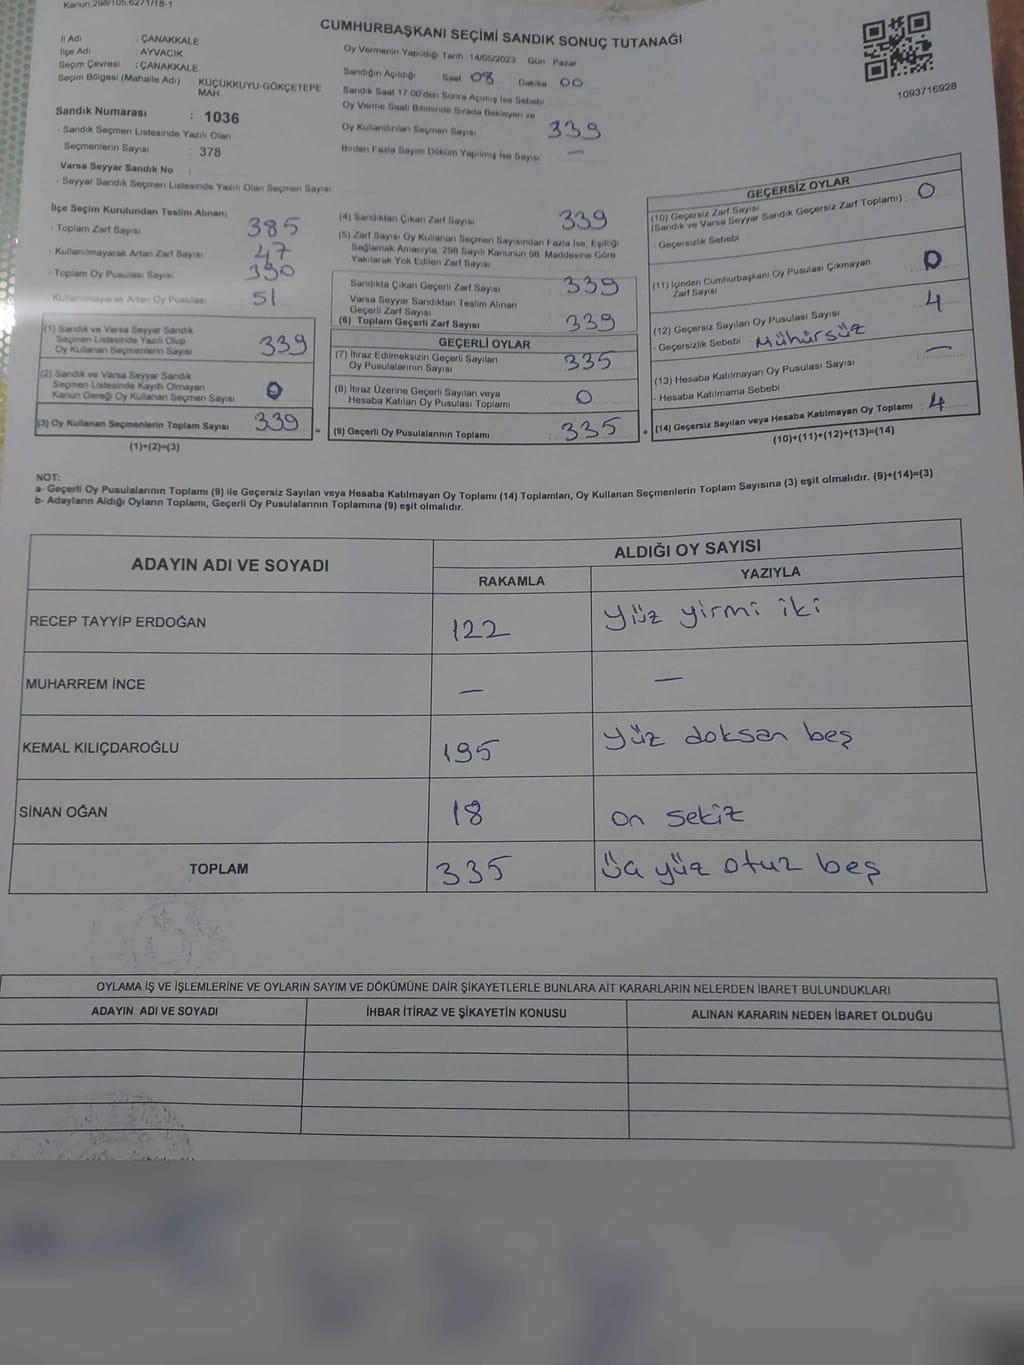 Kanun:298/105.6271/18-1
CUMHURBAŞKANI SEÇİMİ SANDIK SONUÇ TUTANAĞI
1093716928
İl Adı : ÇANAKKALE
İlçe Adı : AYVACIK
Seçim Çevresi : ÇANAKKALE
Seçim Bölgesi (Mahalle Adı) : KÜÇÜKKUYU-GÖKÇETEPE
MAH.
Sandık Numarası : 1036
- Sandık Seçmen Listesinde Yazılı Olan
Seçmenlerin Sayısı : 378
Varsa Seyyar Sandık No :
- Seyyar Sandık Seçmen Listesinde Yazılı Olan Seçmen Sayısı
Oy Vermenin Yapıldığı Tarih 14/05/2023 Gün Pazar
Sandığın Açıldığı Saat 08 Dakika 00
Sandık Saat 17:00'den Sonra Açımış İse Sebebi
Oy Verme Saati Bitiminde Sırada Bekleyen ve
Oy Kullandırılan Seçmen Sayısı 339
Birden Fazla Sayım Döküm Yapılmış İse Sayısı —
İlçe Seçim Kurulundan Teslim Alınan;
- Toplam Zarf Sayısı 385
- Kullanılmayarak Artan Zarf Sayısı 47
- Toplam Oy Pusulası Sayısı 390
- Kullanılmayarak Artan Oy Pusulası 51
(1) Sandık ve Varsa Seyyar Sandık
Seçmen Listesinde Yazılı Olup
Oy Kullanan Seçmenlerin Sayısı 339
(2) Sandık ve Varsa Seyyar Sandık
Seçmen Listesinde Kayıtlı Olmayan
Kanun Gereği Oy Kullanan Seçmen Sayısı 0
(3) Oy Kullanan Seçmenlerin Toplam Sayısı 339 =
(1)+(2)=(3)
(4) Sandıktan Çıkan Zarf Sayısı 339
(5) Zarf Sayısı Oy Kullanan Seçmen Sayısından Fazla İse, Eşitliği
Sağlamak Amacıyla, 298 Sayılı Kanunun 98. Maddesine Göre
Yakılarak Yok Edilen Zarf Sayısı
Sandıkta Çıkan Geçerli Zarf Sayısı 339
Varsa Seyyar Sandıktan Teslim Alınan
Geçerli Zarf Sayısı
(6) Toplam Geçerli Zarf Sayısı 339
GEÇERLİ OYLAR
(7) İtiraz Edilmeksizin Geçerli Sayılan
Oy Pusulalarının Sayısı 335
(8) İtiraz Üzerine Geçerli Sayılan veya
Hesaba Katılan Oy Pusulası Toplamı 0
(9) Geçerli Oy Pusulalarının Toplamı 335 +
GEÇERSİZ OYLAR
(10) Geçersiz Zarf Sayısı
(Sandık ve Varsa Seyyar Sandık Geçersiz Zarf Toplamı) : 0
- Geçersizlik Sebebi
(11) İçinden Cumhurbaşkanı Oy Pusulası Çıkmayan
Zarf Sayısı 0
(12) Geçersiz Sayılan Oy Pusulası Sayısı 4
- Geçersizlik Sebebi Mühürsüz
(13) Hesaba Katılmayan Oy Pusulası Sayısı —
- Hesaba Katılmama Sebebi :
(14) Geçersiz Sayılan veya Hesaba Katılmayan Oy Toplamı : 4
(10)+(11)+(12)+(13)=(14)
NOT:
a- Geçerli Oy Pusulalarının Toplamı (9) ile Geçersiz Sayılan veya Hesaba Katılmayan Oy Toplamı (14) Toplamları, Oy Kullanan Seçmenlerin Toplam Sayısına (3) eşit olmalıdır. (9)+(14)=(3)
b- Adayların Aldığı Oyların Toplamı, Geçerli Oy Pusulalarının Toplamına (9) eşit olmalıdır.
ADAYIN ADI VE SOYADI
ALDIĞI OY SAYISI
RAKAMLA YAZIYLA
RECEP TAYYİP ERDOĞAN 122 yüz yirmi iki
MUHARREM İNCE — —
KEMAL KILIÇDAROĞLU 195 yüz doksan beş
SİNAN OĞAN 18 on sekiz
TOPLAM 335 üç yüz otuz beş
OYLAMA İŞ VE İŞLEMLERİNE VE OYLARIN SAYIM VE DÖKÜMÜNE DAİR ŞİKAYETLERLE BUNLARA AİT KARARLARIN NELERDEN İBARET BULUNDUKLARI
ADAYIN ADI VE SOYADI İHBAR İTİRAZ VE ŞİKAYETİN KONUSU ALINAN KARARIN NEDEN İBARET OLDUĞU